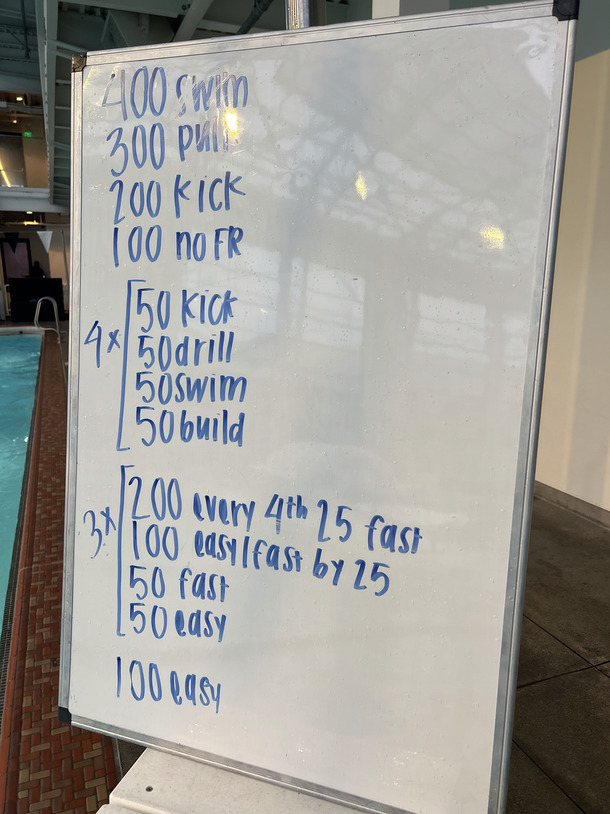 400 swim
300 pull
200 kick
100 no FR
4x
50 kick
50 drill
50 swim
50 build
3x
200 every 4th 25 fast
100 easy/fast by 25
50 fast
50 easy
100 easy